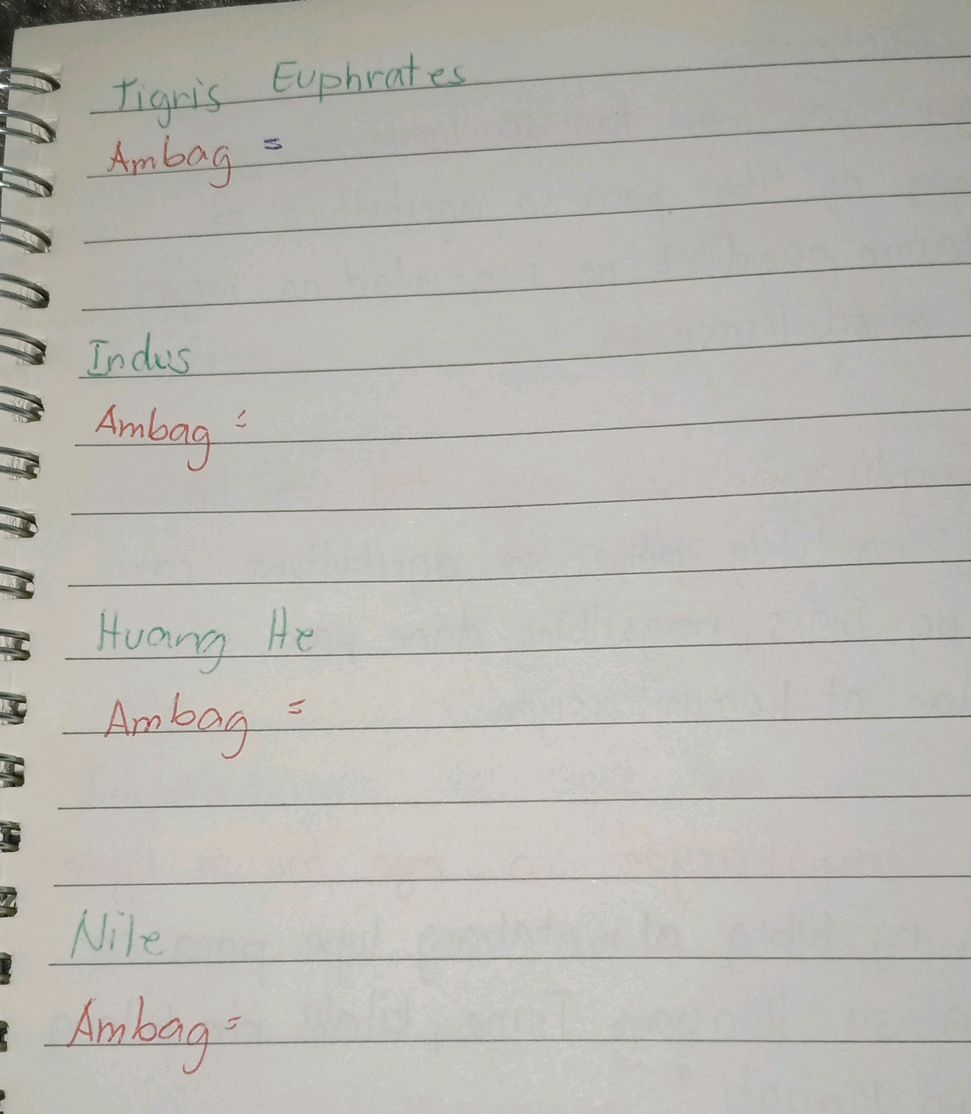 Tigris Euphrates
Ambag =
Indus
Ambag =
Huang He
Ambag =
Nile
Ambag =